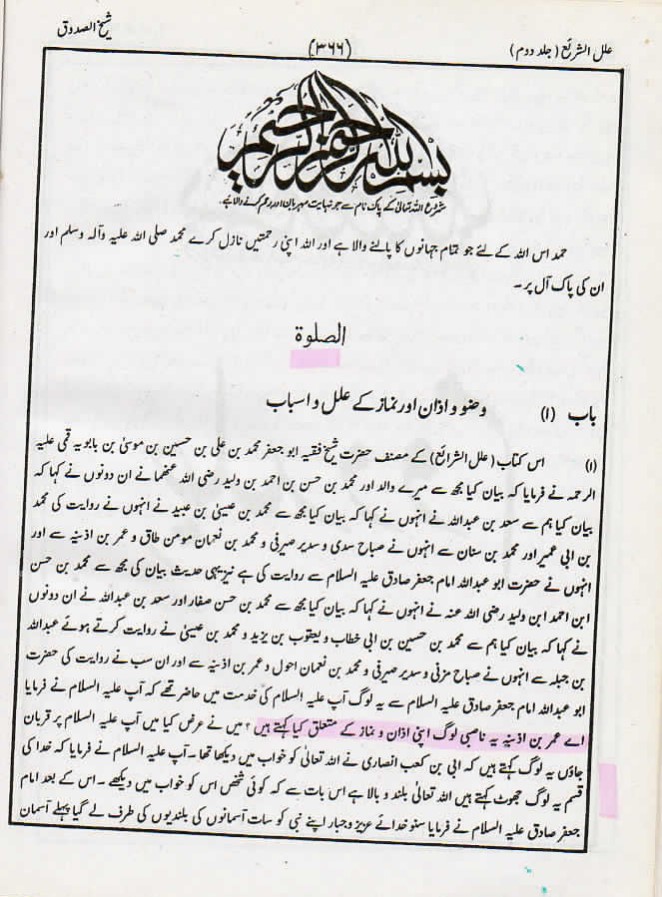 شیخ الصدوق
(۳۶۶)
علل الشرائع (جلد دوم)
بسم اللہ الرحمن الرحیم
شروع اللہ تعالیٰ کے پاک نام سے جو نہایت مہربان اور رحم کرنے والا ہے۔
حمد اس اللہ کے لئے جو تمام جہانوں کا پالنے والا ہے اور اللہ اپنی رحمتیں نازل کرے محمد صلی اللہ علیہ وآلہ وسلم اور
ان کی پاک آل پر۔
الصلوۃ
باب (۱) وضو و اذان اور نماز کے علل و اسباب
(۱) اس کتاب (علل الشرائع) کے مصنف حضرت شیخ فقیہ ابو جعفر محمد بن علی بن حسین بن موسیٰ بن بابویہ قمی علیہ
الرحمہ نے فرمایا کہ بیان کیا مجھ سے میرے والد اور محمد بن حسن بن احمد بن ولید رضی اللہ عنھما نے ان دونوں نے کہا کہ
بیان کیا ہم سے سعد بن عبداللہ نے انہوں نے کہا کہ بیان کیا مجھ سے محمد بن عیسیٰ بن عبید نے انہوں نے روایت کی محمد
بن ابی عمیر اور محمد بن سنان سے انہوں نے صباح سدی و سدیر صیرفی و محمد بن نعمان مومن طاق و عمر بن اذنیہ سے اور
انہوں نے حضرت ابو عبداللہ امام جعفر صادق علیہ السلام سے روایت کی ہے نیز یہی حدیث بیان کی مجھ سے محمد بن حسن
ابن احمد ابن ولید رضی اللہ عنہ نے انہوں نے کہا کہ بیان کیا مجھ سے محمد بن حسن صفار اور سعد بن عبداللہ نے ان دونوں
نے کہا کہ بیان کیا ہم سے محمد بن حسین بن ابی خطاب و یعقوب بن یزید و محمد بن عیسیٰ نے روایت کرتے ہوئے عبداللہ
بن جبلہ سے انہوں نے صباح مزنی و سدیر صیرفی و محمد بن نعمان احول و عمر بن اذنیہ سے اور ان سب نے روایت کی حضرت
ابو عبداللہ امام جعفر صادق علیہ السلام سے یہ لوگ آپ علیہ السلام کی خدمت میں حاضر تھے کہ آپ علیہ السلام نے فرمایا
اے عمر بن اذنیہ یہ ناصبی لوگ اپنی اذان و نماز کے متعلق کیا کہتے ہیں ؟ میں نے عرض کیا میں آپ علیہ السلام پر قربان
جاؤں یہ لوگ کہتے ہیں کہ ابی بن کعب انصاری نے اللہ تعالیٰ کو خواب میں دیکھا تھا۔ آپ علیہ السلام نے فرمایا کہ خدا کی
قسم یہ لوگ جھوٹ کہتے ہیں اللہ تعالیٰ بلند و بالا ہے اس بات سے کہ کوئی شخص اس کو خواب میں دیکھے۔ اس کے بعد امام
جعفر صادق علیہ السلام نے فرمایا سنو خدائے عزیز و جبار اپنے نبی کو سات آسمانوں کی بلندیوں کی طرف لے گیا پہلے آسمان